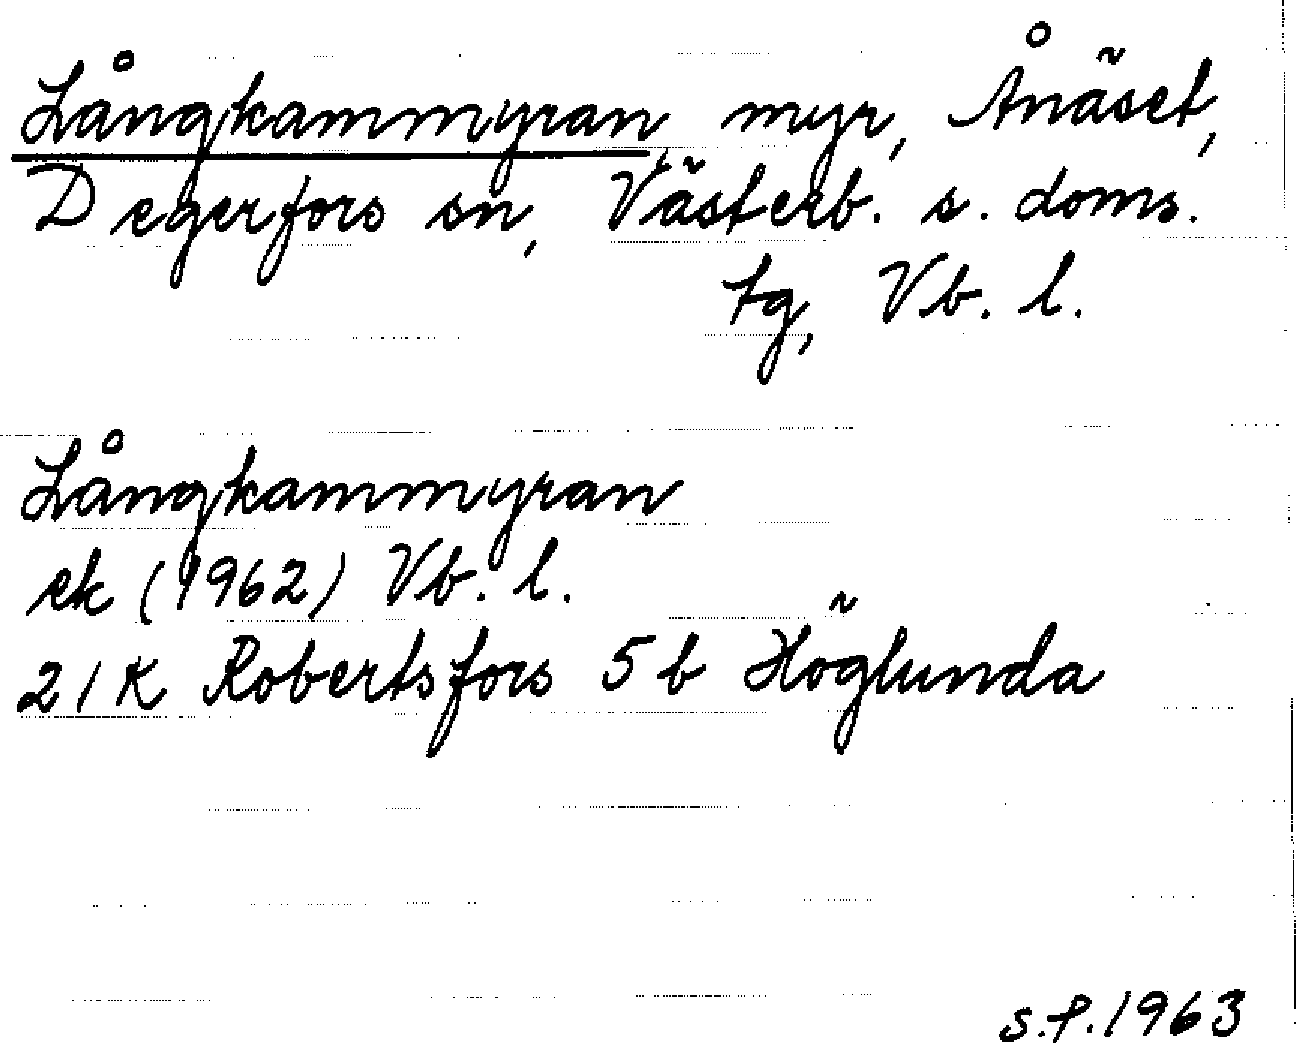 Långkammyran, myr, Ånäset,
Degerfors sn, Västerb. s. doms.
tg, Vb. l.
Långkammyran
ek (1962) Vb. l.
21K Robertsfors 5 b Höglunda
s.f. 1963